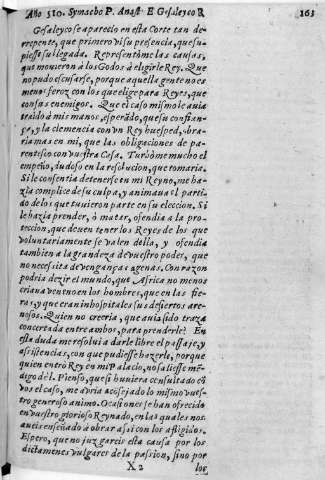 Año 510. Symacho P. Anast. E Gesaleyco R 163
Gesaleyco se apareciò en esta Corte tan de
rrepente, que primero vì su presencia, que su-
piesse su llegada. Representòme las causas,
que movieron à los Godos à elegirle Rey. Que
no pudo escusarse, porque aquella gente no es
menos feroz con los que elige para Reyes, que
con sus enemigos. Que el caso mismo le avia
traido à mis manos, esperãdo, que su confian-
ça, y la clemencia con vn Rey huesped, obra-
ria mas en mi, que las obligaciones de pa-
rentesco con vuestra Casa. Turbòme mucho el
empeño, dudoso en la resolucion, que tomaria.
Si le consentia detenerse en mi Reyno, me ha-
zia complice de su culpa, y animava el parti-
do de los que tuvieron parte en su eleccion. Si
le hazia prender, ò matar, ofendia a la pro-
teccion, que deven tener los Reyes de los que
voluntariamente se valen della, y ofendia
tambien a la grandeza de vuestro poder, que
no necessita de venganças agenas. Con razon
podria dezir el mundo, que Africa no menos
criava veneno en los hombres, que en las fie-
ras, y que eran inhospitales sus desiertos are-
nosos. Quien no creeria, que avia sido traza
concertada entre ambos, para prenderle? En
esta duda me resolvì a darle libre el passaje, y
assistencias, con que pudiesse hazerle, porque
quien entrò Rey en mi Palacio, no saliesse mẽ-
digo dèl. Pienso, que si huviera consultado cõ
vos el caso, me avria acõsejado lo mismo vues-
tro generoso animo. Ocasiones se han ofrecido
en vuestro glorioso Reynado, en las quales nos
aveis enseñado à obrar assi con los afligidos.
Espero, que no juzgareis esta causa por los
dictamenes vulgares de la passion, sino por
X 2 los